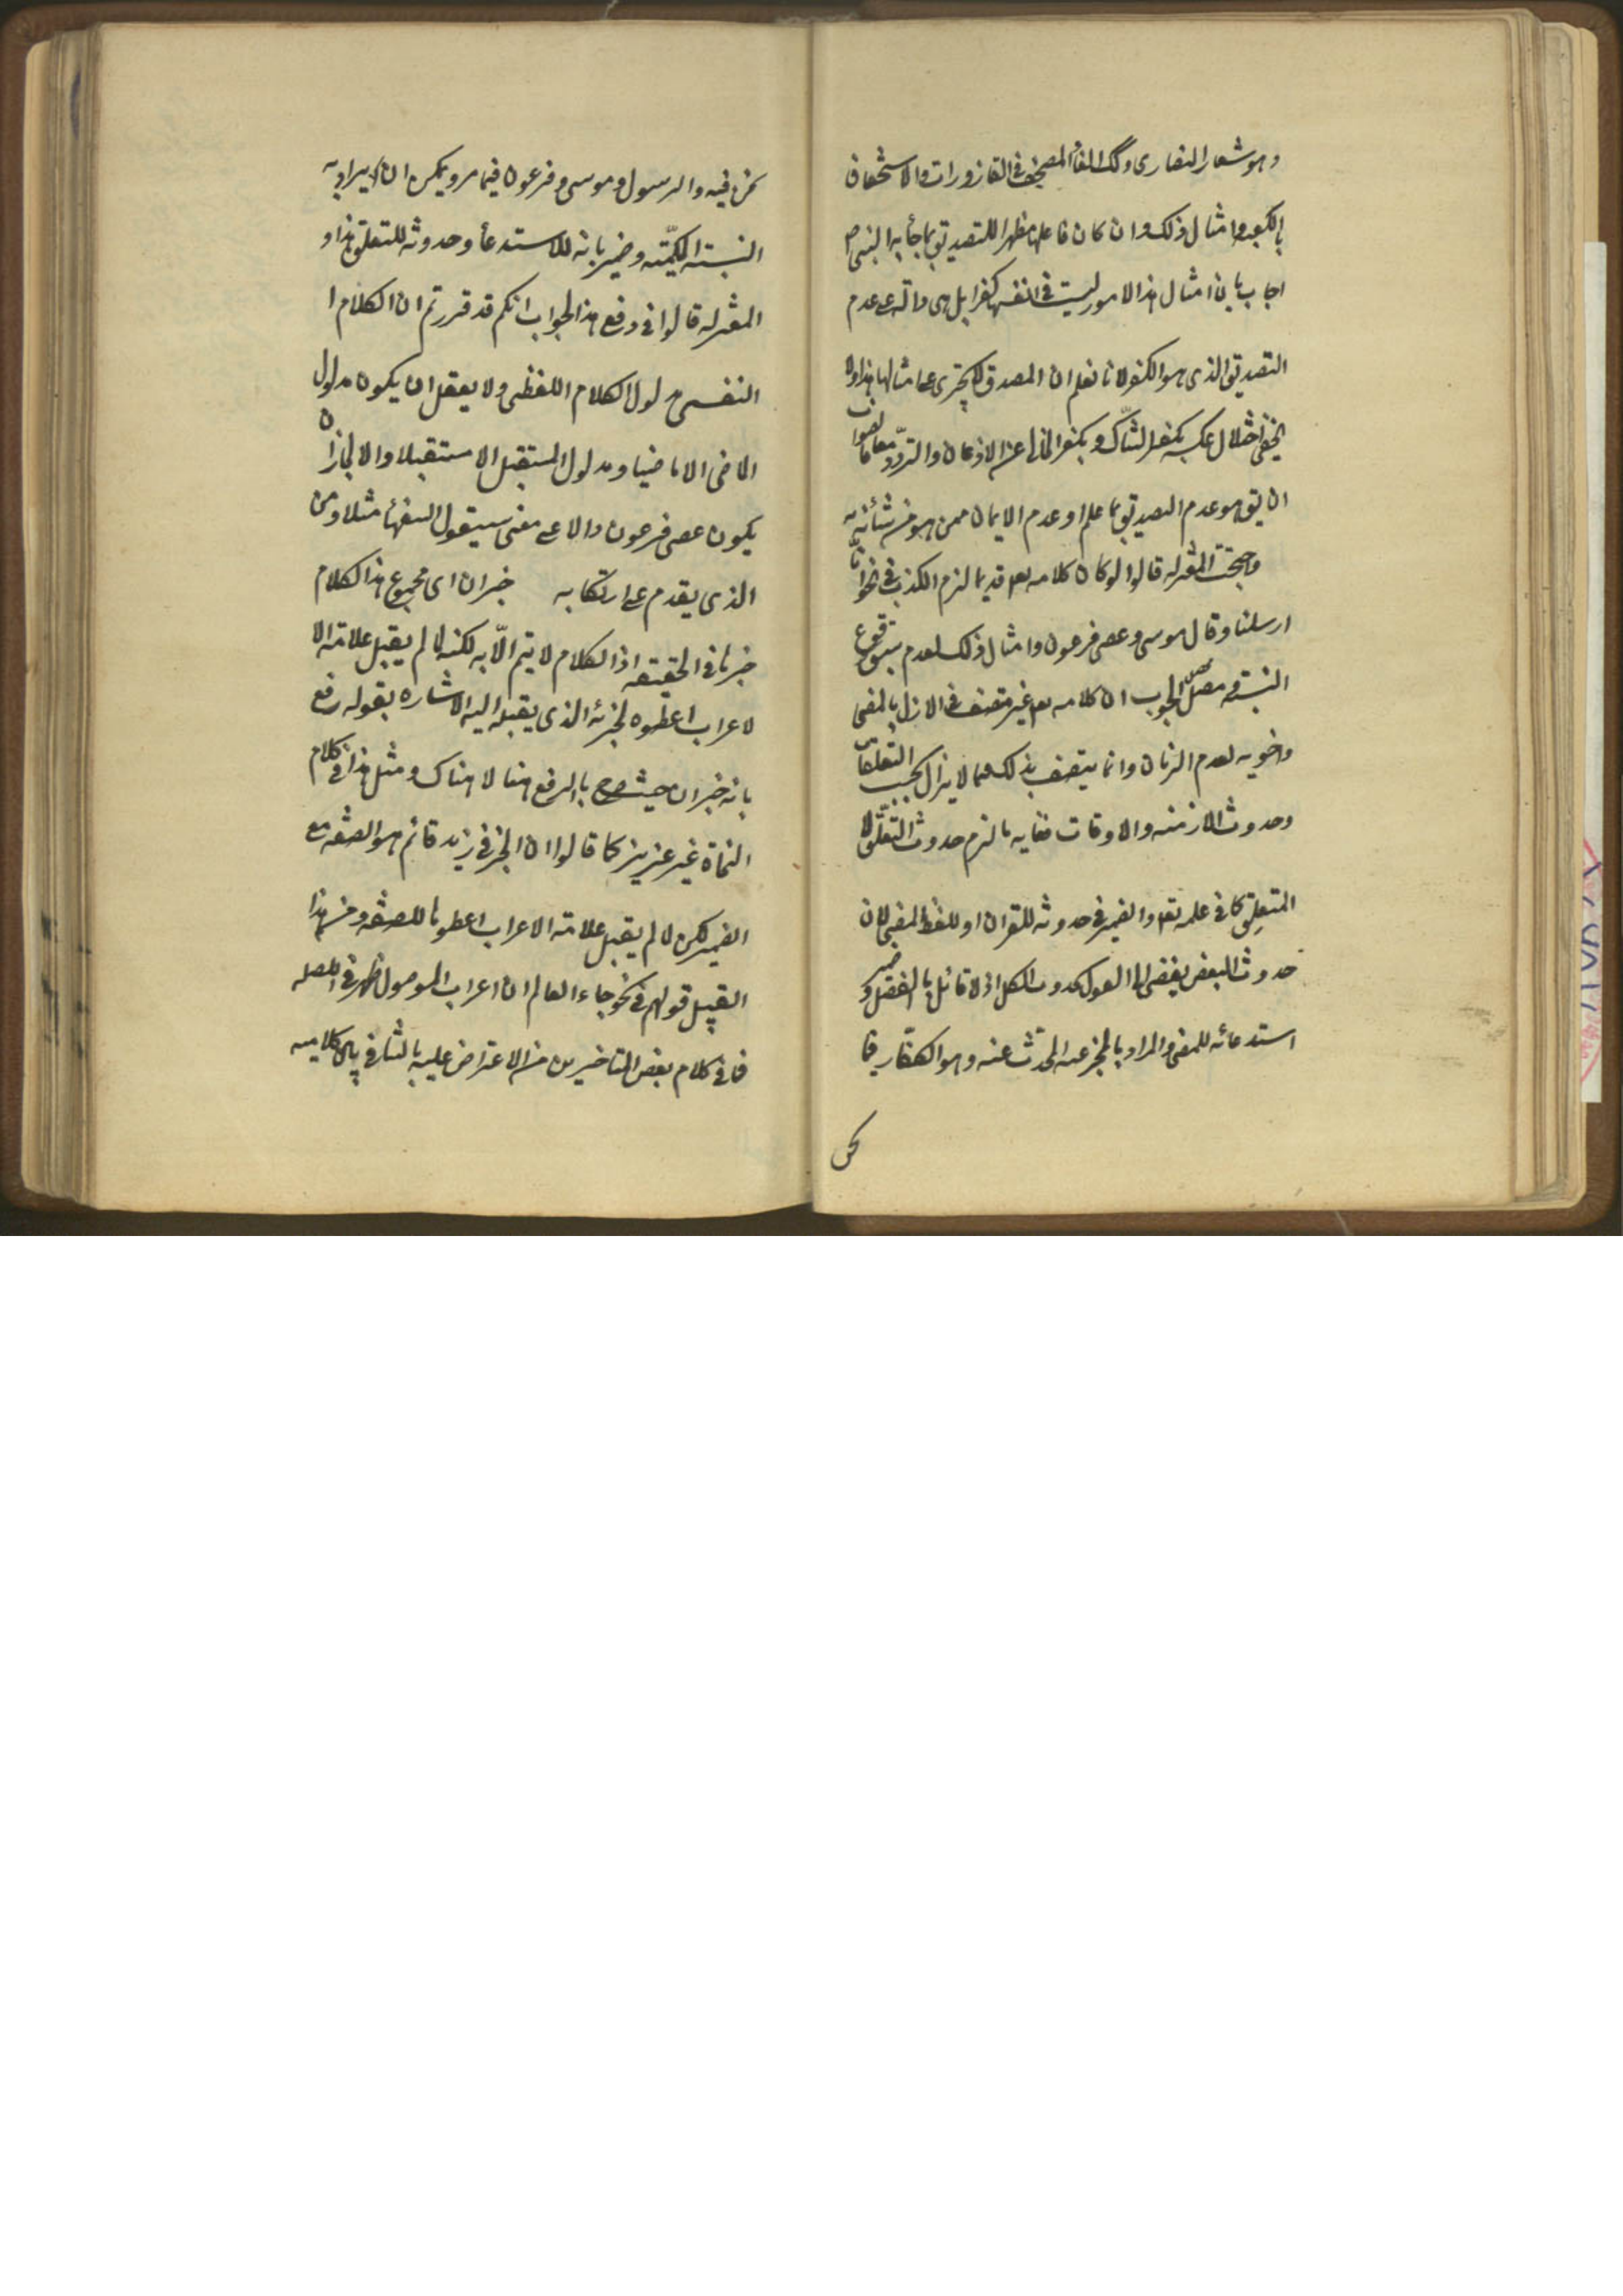 وهو شعار النصارى وكالقاء المصحف فى القاذورات والاستخفاف
بالكعبه وامثال ذلك وان كان فاعلها مظهرا للتصديق بما جأ به النبى ص
اجاب بان امثال هذا الامور ليست فى انفسها كفرا بل هى دالة على عدم
التصديق الذى هو الكفر لانا نعلم ان المصدق لا يجترى على امثالها هذا ولا
يخفى اختلال عكسه بكفر الشاك وبكفر الخالى عن الاذعان والتردد معا فالصواب
ان يق هو عدم التصديق بما علم او عدم الايمان ممن هو من شأنه
وحجت المعتزله قالوا لو كان كلامه تعه قديما لزم الكذب فى نحو انا
ارسلنا وقال موسى وعصى فرعون وامثال ذلك لعدم سبق وقوع
النسبة ومحصل الجوب ان كلامه تعه غير متصف فى الازل بالمضى
واخويه لعدم الزمان وانما يتصف بذلك فيما لا يزال بحسب التعلقات
وحدوث الازمنه والاوقات فغايه ما لزم حدوث التعلق لا
المتعلق كما فى علمه تعه والضمير فى حدوثه للقران او للفظ المضى لان
حدوث البعض يفضى الى القول بحدوث الكل اذ لا قائل بالفصل وضمير
استدعائه للمضى والمراد بالمخبر عنه المحدث عنه وهو الكفار فيما
نحن
نحن فيه والرسول وموسى وفرعون فيما مر ويمكن ان يراد به
النسبته الحكميّته وضمير بانه للاستدعأ وحدوثه للتعلق هذا و
المعتزله قالوا فى دفع هذا الجواب انكم قد قررتم ان الكلام ا
النفسى مدلول الكلام اللفظى ولا يعقل ان يكون مدلول
الماضى الا ماضيا ومدلول المستقبل الا مستقبلا والا لجاز ان
يكون عصى فرعون دالا على معنى سيقول السفهأ مثلا ومن
الذى يقدم على ارتكابه خبر ان اى مجموع هذا الكلام
خبرها فى الحقيقه اذ الكلام لا يتم الّا به لكنه لما لم يقبل علامة الا
لاعراب اعطوه لجزئه الذى يقبله اليه الاشاره بقوله رفع
بانه خبر ان حيث صرح بالرفع هنا لا هناك ومثل هذا فى كلام
النحاة غير عزيز كما قالوا ان الخبر فى زيد قائم هو الصفه مع
الضمير لكن لما لم يقبل علامة الاعراب اعطوها للصفه ومن هذا
القبيل قولهم فى نحو جاء العالم ان اعراب الموصول ظهر فى الصله
فما فى كلام بعض المتاخرين من الاعتراض عليه بالتنافى بين كلاميه